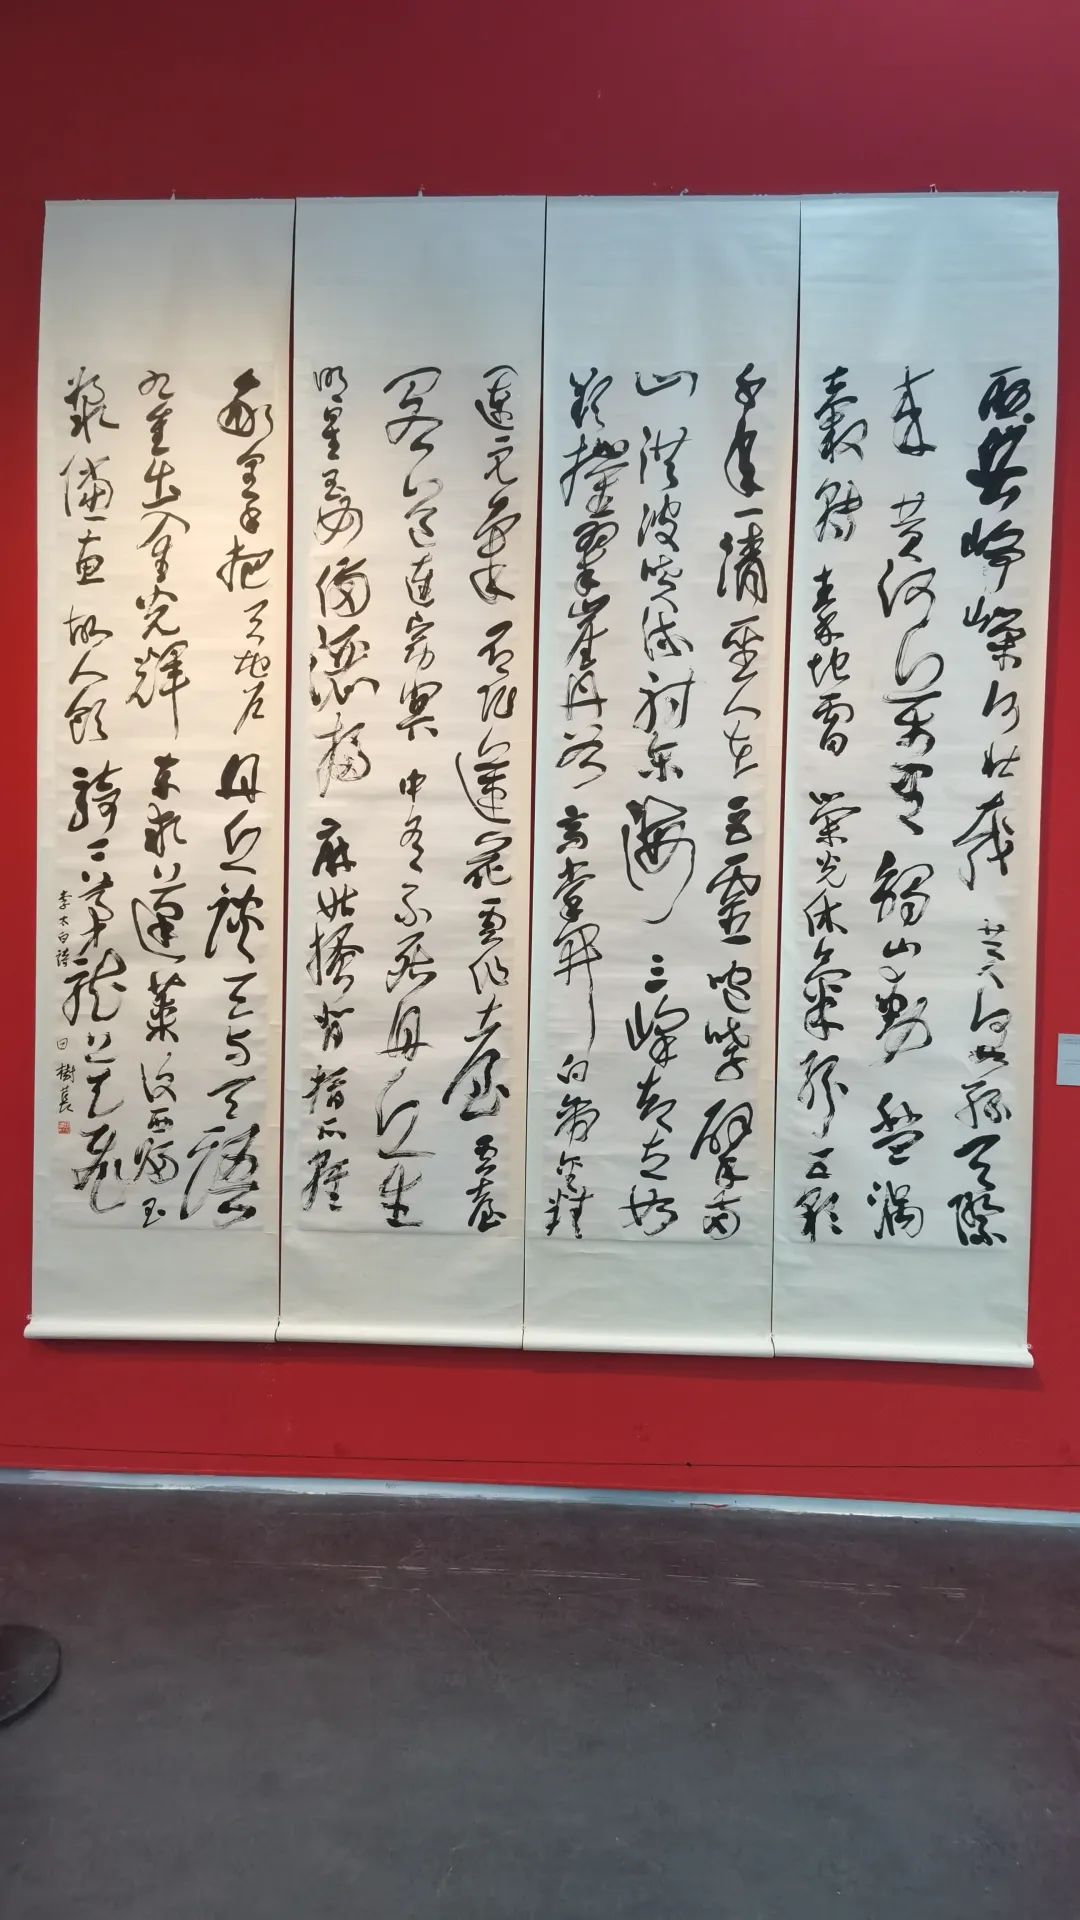 西岳崢嶸何壯哉黃河如絲天際
來黃河萬里觸山動盤渦
轂轉秦地雷榮光休氣紛五彩
千年一清聖人在巨靈咆哮擘兩
山洪波噴流射東海三峰却立如
欲摧翠崖丹谷高掌開白帝金精
運元氣石作蓮花雲作臺雲臺
閣道連窈冥中有不死丹丘生
明星玉女備灑掃麻姑搔背指爪輕
我皇手把天地戶丹丘談天與天語
九重出入生光輝東求蓬萊復西歸玉
漿儻惠故人飲騎二茅龍上天飛
李太白詩 田樹萇